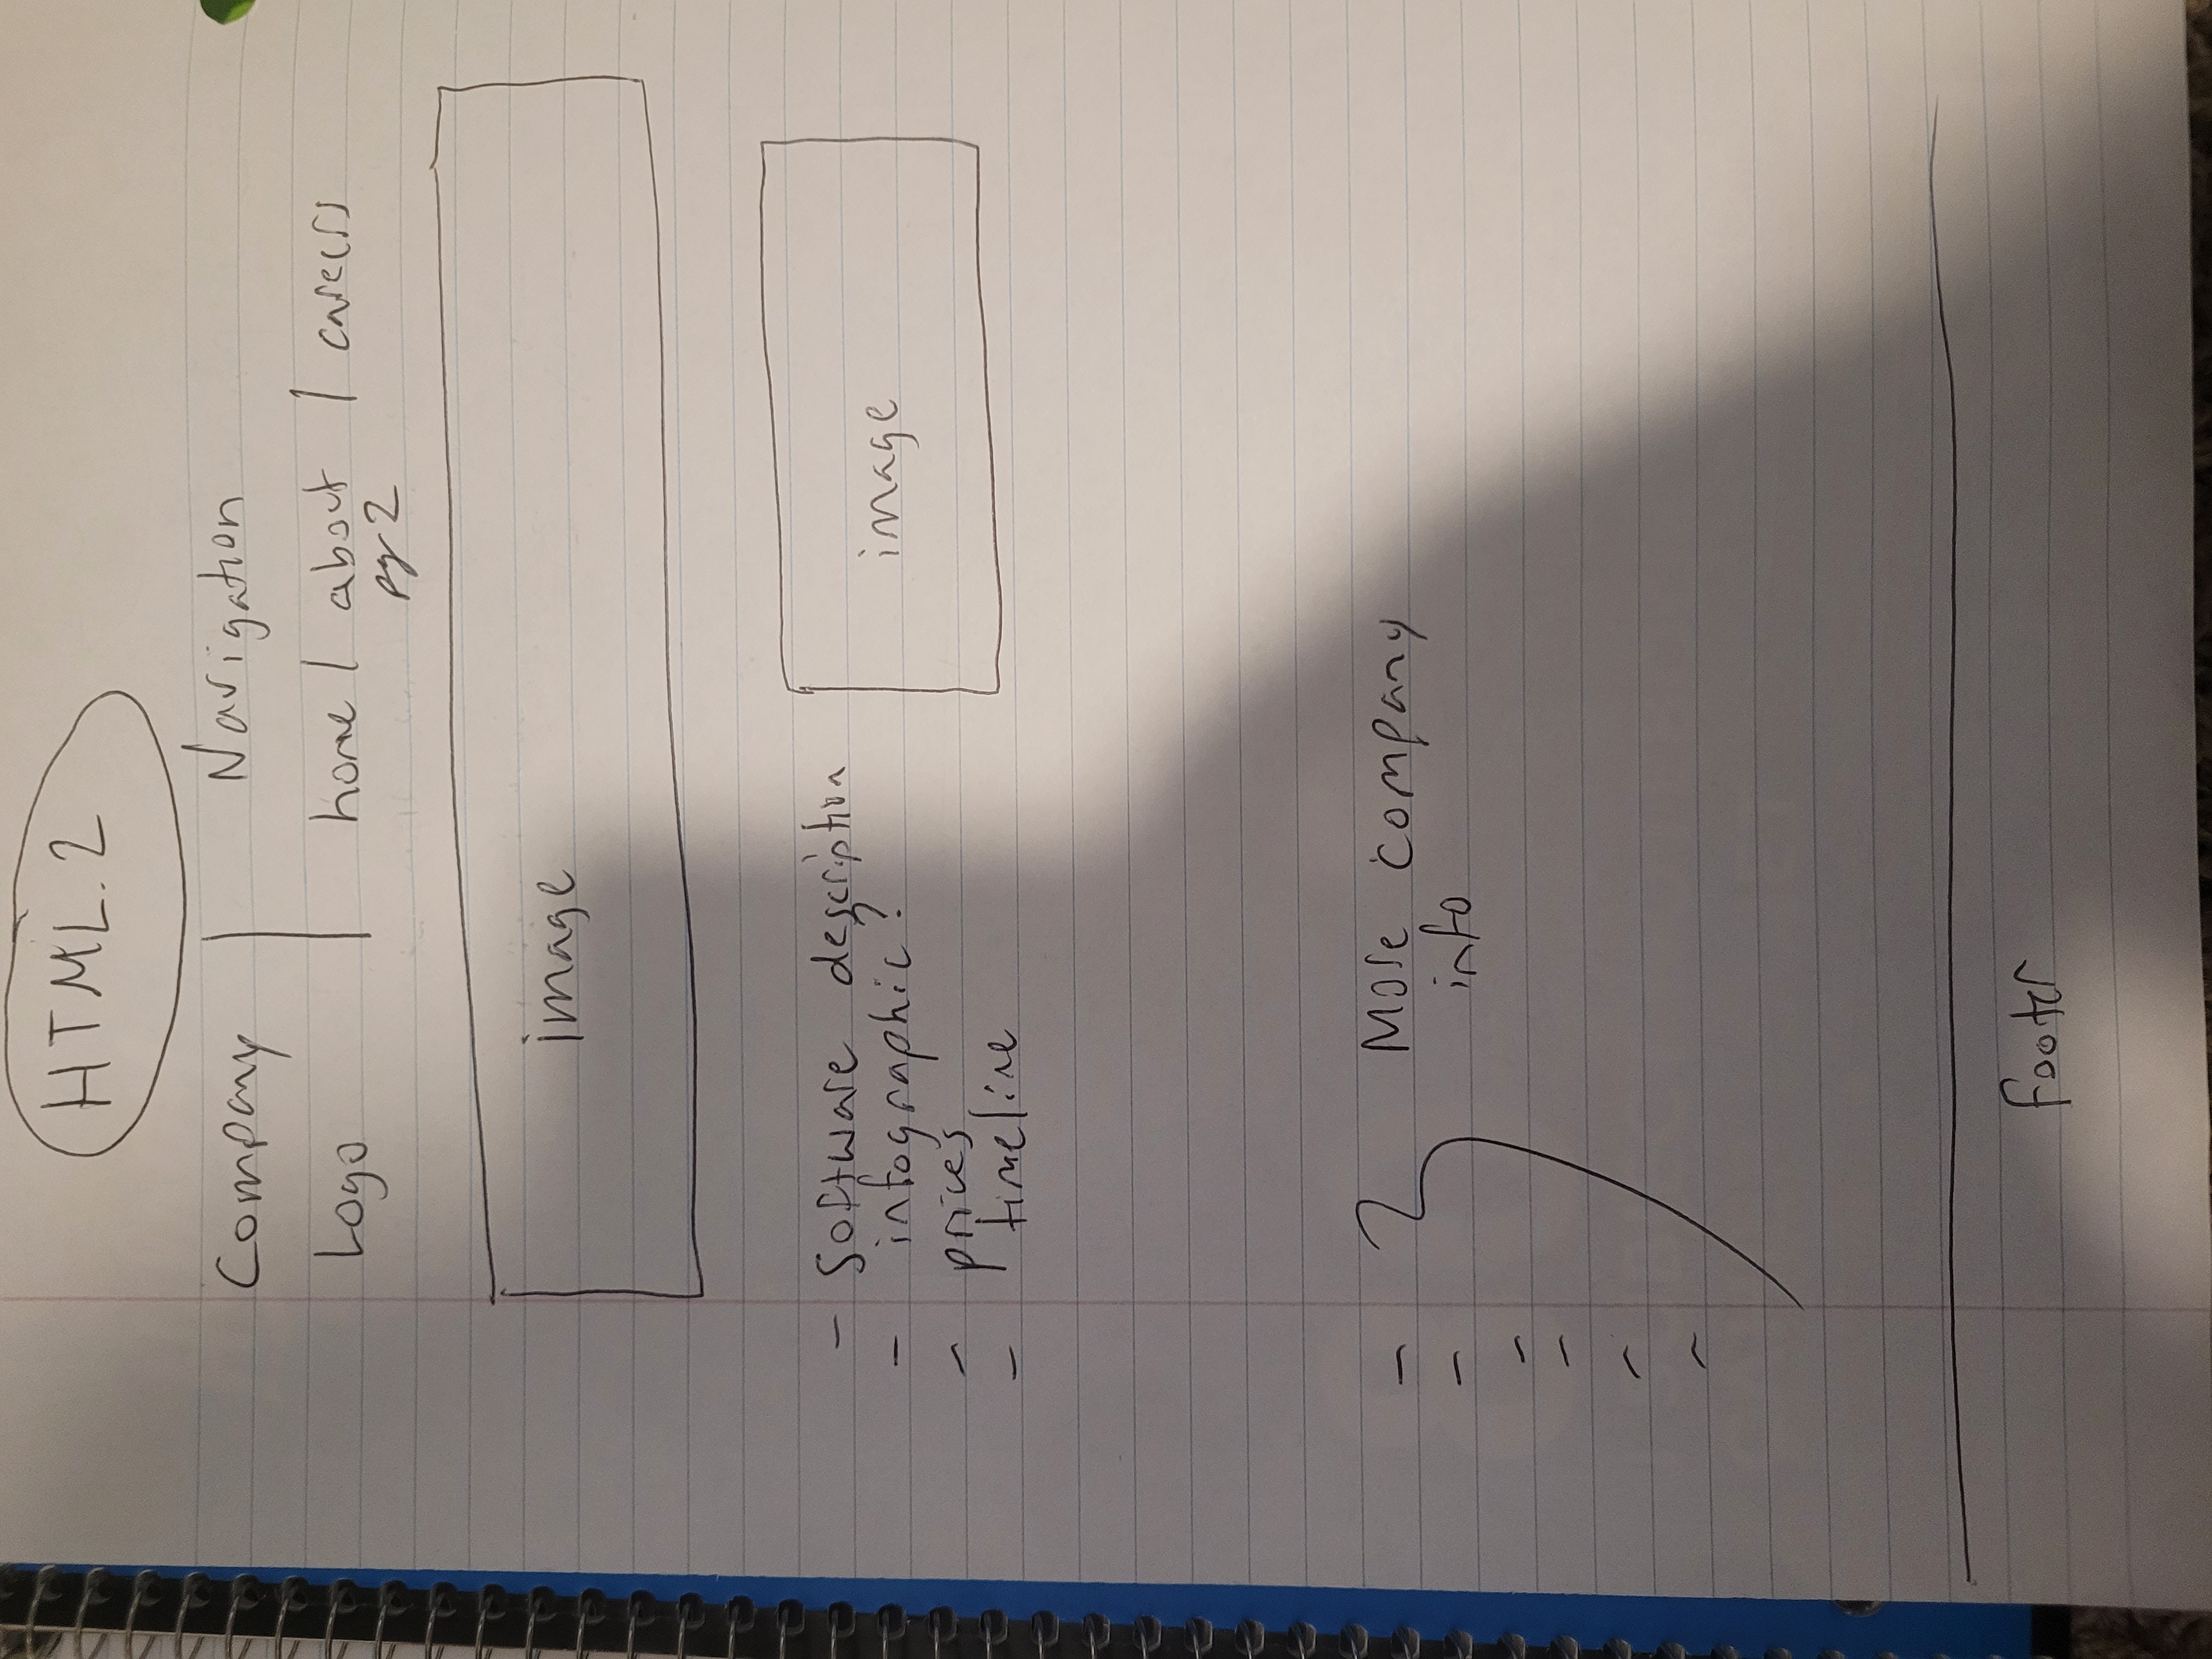 HTML.2
Company | Navigation
Logo | home | about | careers
pg 2
image
- Software description
- infographic?
- prices
- timeline
image
- More company
- info
-
-
-
-
footer